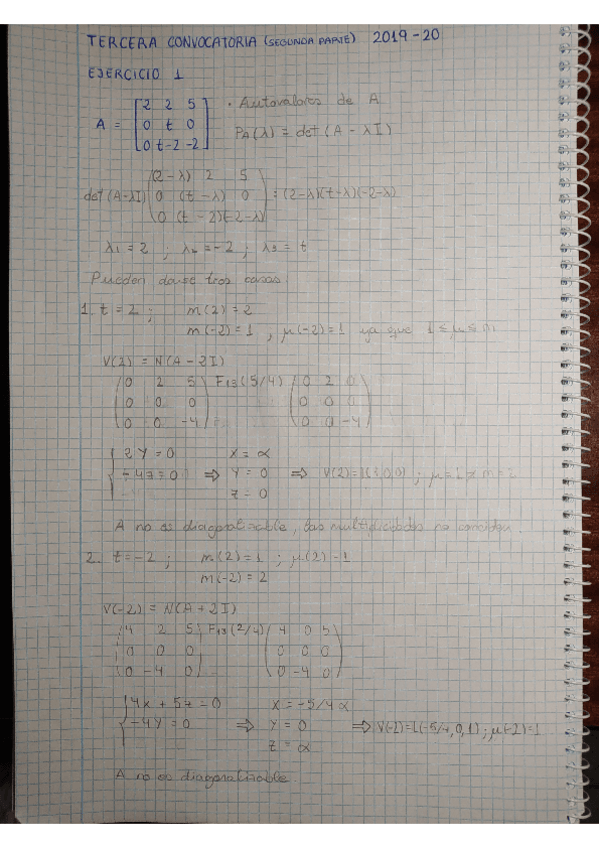 TERCERA CONVOCATORIA (SEGUNDA PARTE) 2019-20
EJERCICIO 1
A = [2 2 5 · Autovalores de A
0 t 0
0 t-2 -2] PA(λ) = det (A - λI)
det(A-λI) (2-λ) 2 5
0 (t-λ) 0 = (2-λ)(t-λ)(-2-λ)
0 (t-2) (-2-λ)
λ1 = 2 ; λ2 = -2 ; λ3 = t
Pueden darse tres casos:
1. t = 2 ; m(2) = 2
m(-2) = 1 , μ(-2) = 1 ya que 1 ≤ μ ≤ m
V(2) = N(A - 2I)
(0 2 5) F13(5/4) (0 2 0)
(0 0 0) (0 0 0)
(0 0 -4) (0 0 -4)
{ 2Y = 0 X = α
-4z = 0 ⇒ Y = 0 ⇒ V(2) = ; μ = 1 ≠ m = 2
z = 0
A no es diagonalizable, las multiplicidades no coinciden.
2. t = -2 ; m(2) = 1 ; μ(2) = 1
m(-2) = 2
V(-2) = N(A + 2I)
(4 2 5) F13(2/4) (4 0 5)
(0 0 0) (0 0 0)
(0 -4 0) (0 -4 0)
{ 4x + 5z = 0 X = -5/4 α
-4Y = 0 ⇒ Y = 0 ⇒ V(-2) = L(-5/4, 0, 1) ; μ(-2) = 1
z = α
A no es diagonalizable.